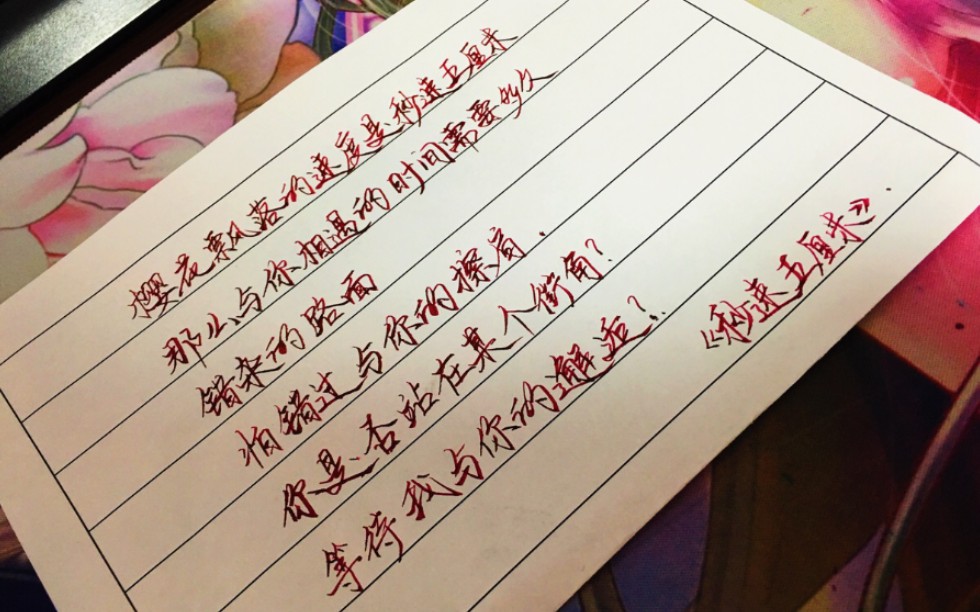 樱花票风落的速度是秒速五厘米
那么与你相遇的时间需要多久
错杂的路面
怕错过与你的擦肩.
你是否站在某个街角?
等待我与你的邂逅?
《秒速五厘米》.